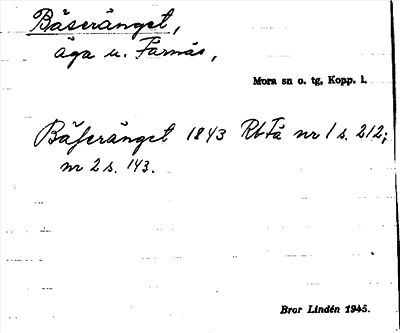 Båseränget,
äga u. Färnäs,
Mora sn o. tg, Kopp. l.
Båseränget 1843 RbFä nr 1 s. 212;
nr 2 s. 143.
Bror Lindén 1945.